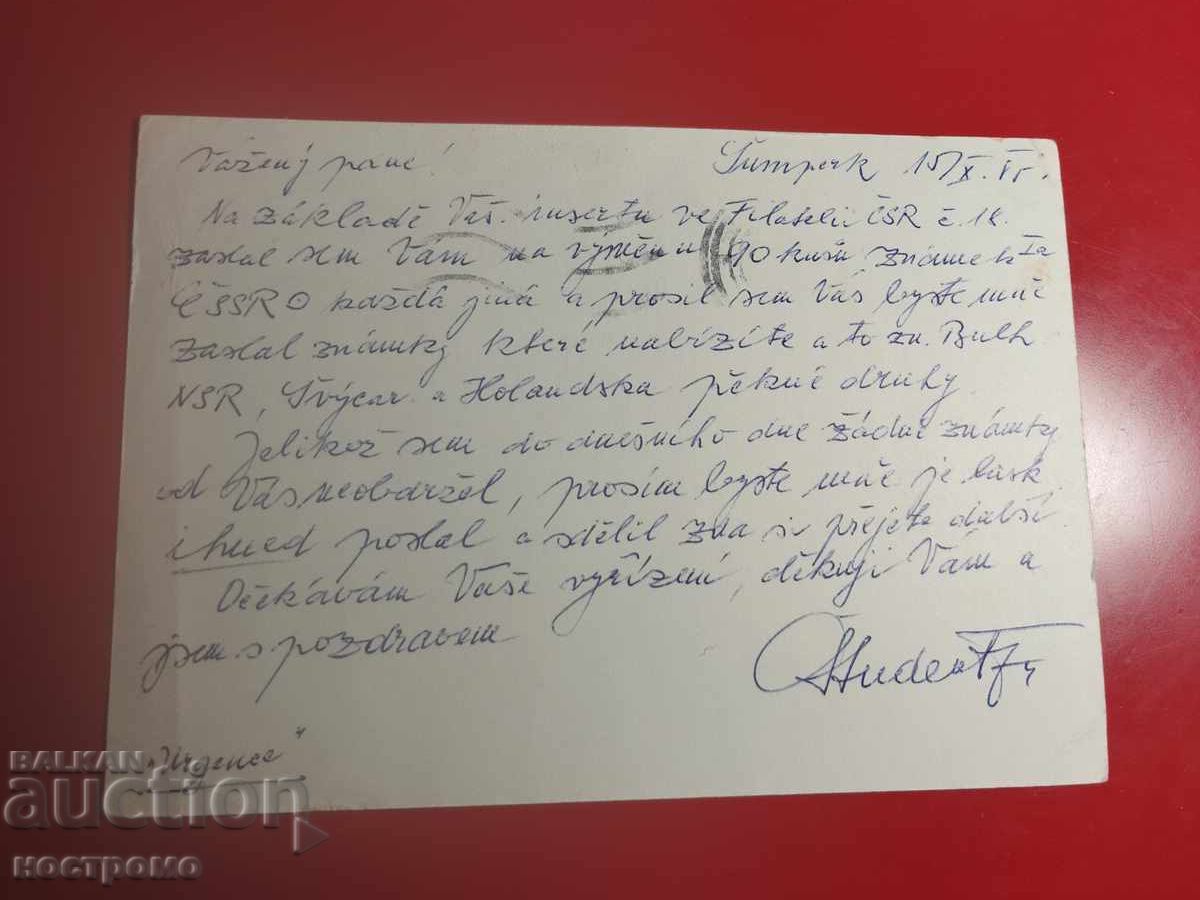 Vážený pane!
Šumperk 15/X.
Na základě Vaš. insertu ve Filatelii ČSR č. 18.
zaslal sem Vám na výměnu 90 kusů známek Ia
ČSSR ⊙ každá jiná a prosil sem Vás byste mně
zaslal známky které nabízíte a to zn. Bulh
NSR, Švýcar. a Holandska pěkné druhy.
Jelikož sem do dnešního dne žádné známky
od Vás neobdržel, prosím byste mně je lask
ihned poslal a sdělil zda si přejete další.
Očekávám Vaše vyřízení, děkuji Vám a
jsem s pozdravem
Student
„Urgence“
BALKAN
auction
костромо